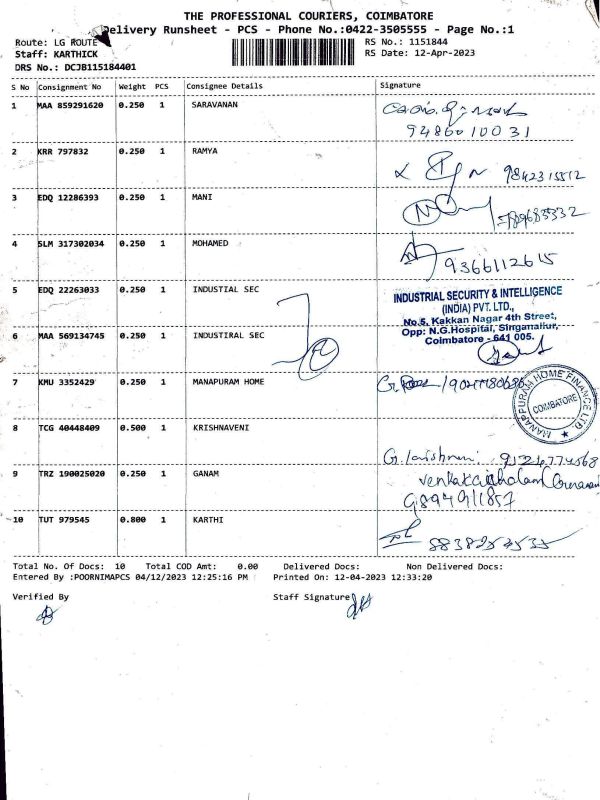 THE PROFESSIONAL COURIERS, COIMBATORE
Delivery Runsheet - PCS - Phone No.:0422-3505555 - Page No.:1
Route: LG ROUTE
RS No.: 1151844
Staff: KARTHICK
RS Date: 12-Apr-2023
DRS No.: DCJB115184401
S No Consignment No Weight PCS Consignee Details Signature
1 MAA 859291620 0.250 1 SARAVANAN
9486010031
2 KRR 797832 0.250 1 RAMYA
9842315512
3 EDQ 12286393 0.250 1 MANI
4 SLM 317302034 0.250 1 MOHAMED
9366112615
5 EDQ 22263033 0.250 1 INDUSTIAL SEC
INDUSTRIAL SECURITY & INTELLIGENCE
(INDIA) PVT. LTD.,
No.5, Kakkan Nagar 4th Street,
Opp: N.G.Hospital, Singanallur,
Coimbatore - 641 005.
6 MAA 569134745 0.250 1 INDUSTIRAL SEC
7 KMU 3352429 0.250 1 MANAPURAM HOME
MANAPPURAM HOME FINANCE LTD
COIMBATORE
8 TCG 40448409 0.500 1 KRISHNAVENI
9 TRZ 190025020 0.250 1 GANAM
10 TUT 979545 0.800 1 KARTHI
Total No. Of Docs: 10 Total COD Amt: 0.00 Delivered Docs: Non Delivered Docs:
Entered By :POORNIMAPCS 04/12/2023 12:25:16 PM Printed On: 12-04-2023 12:33:20
Verified By Staff Signature